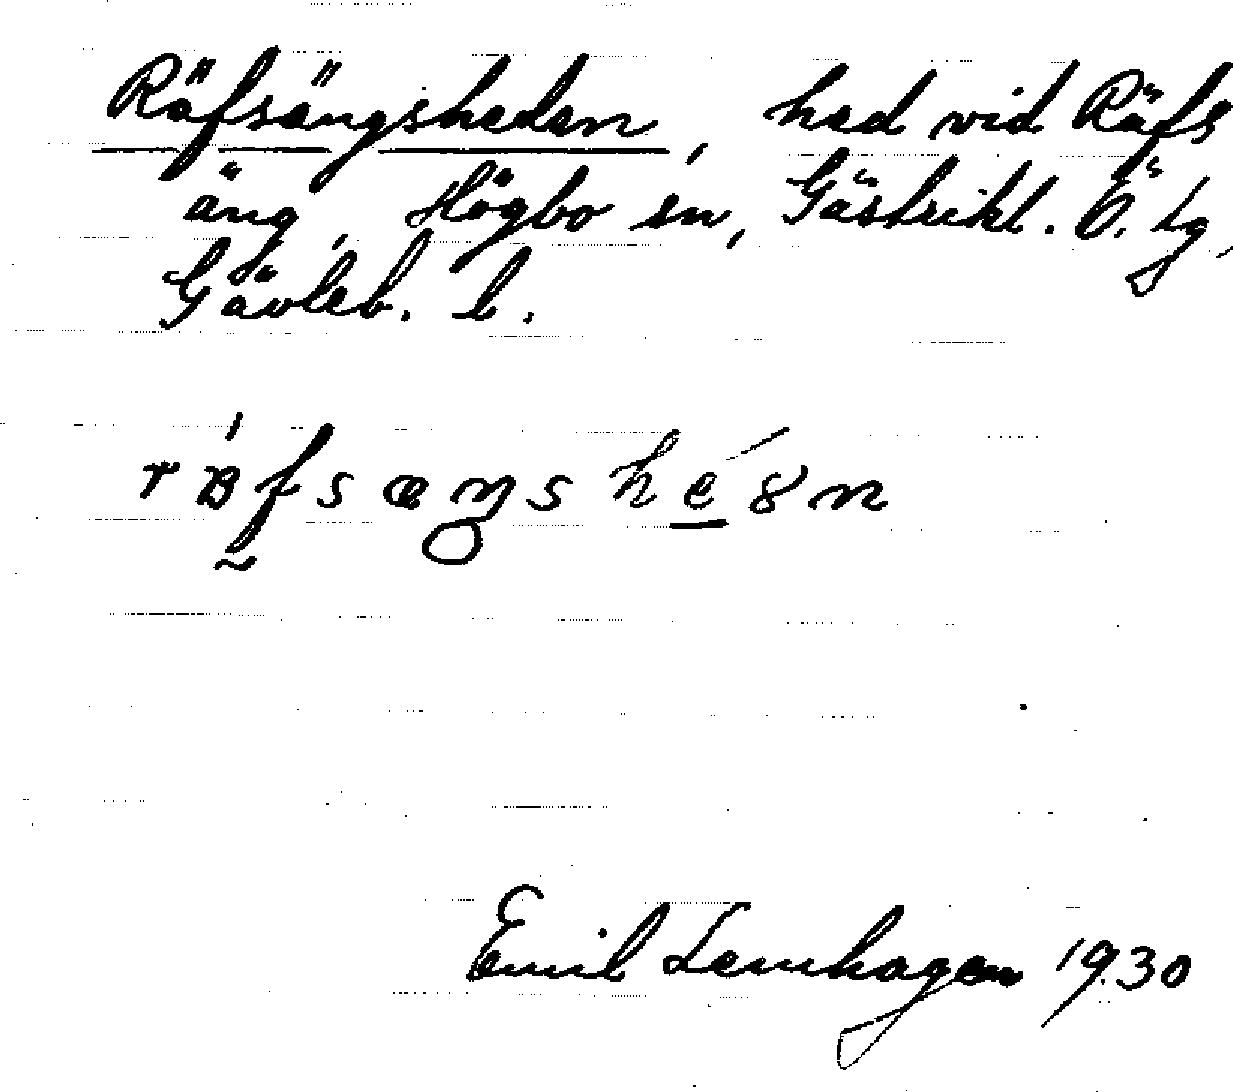 Räfsängsheden, hed vid Räfs
äng, Högbo sn, Gästrikl. Ö. tg,
Gävleb. l.
Emil Lemhagen 1930